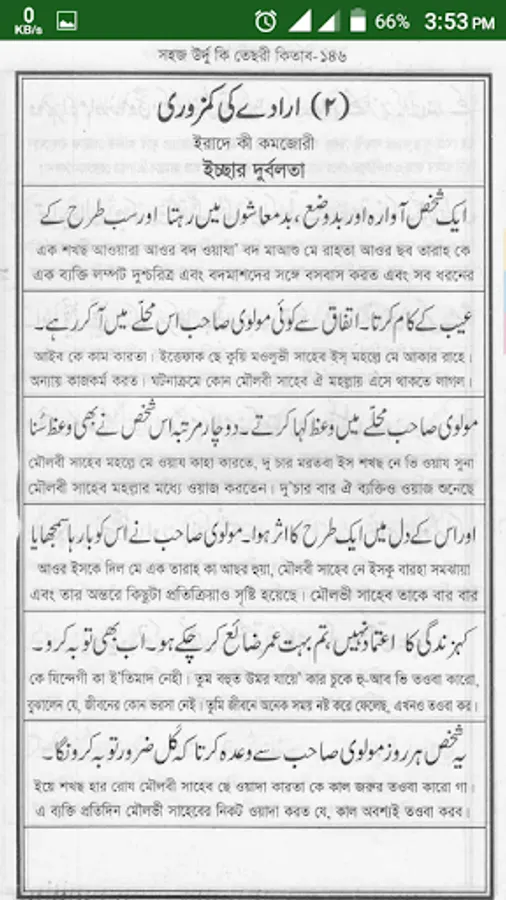 0
KB/s
66%
3:53PM
সহজ উর্দু কি তেছরী কিতাব-১৪৬
(۲) ارادے کی کمزوری
ইরাদে কী কমজোরী
ইচ্ছার দুর্বলতা
ایک شخص آوارہ اور بدوضع، بدمعاشوں میں رہتا اور سب طرح کے
এক শখছ আওয়ারা আওর বদ ওয়াযা' বদ মাআশু মে রাহতা আওর ছব তারাহ কে
এক ব্যক্তি লম্পট দুশ্চরিত্র এবং বদমাশদের সঙ্গে বসবাস করত এবং সব ধরনের
عیب کے کام کرتا۔ اتفاق سے کوئی مولوی صاحب اس محلّے میں آ کر رہے۔
আইব কে কাম কারতা। ইত্তেফাক ছে কুয়ি মওলুভী সাহেব ইস্ মহল্লে মে আকার রাহে।
অন্যায় কাজকর্ম করত। ঘটনাক্রমে কোন মৌলবী সাহেব ঐ মহল্লায় এসে থাকতে লাগল।
مولوی صاحب محلّے میں وعظ کہا کرتے۔ دو چار مرتبہ اس شخص نے بھی وعظ سُنا
মৌলবী সাহেব মহল্লে মে ওয়ায কাহা কারতে, দু চার মরতবা ইস শখছ নে ভি ওয়ায সুনা
মৌলবী সাহেব মহল্লার মধ্যে ওয়াজ করতেন। দু'চার বার ঐ ব্যক্তিও ওয়াজ শুনেছে
اور اس کے دل میں ایک طرح کا اثر ہوا۔ مولوی صاحب نے اس کو بارہا سمجھایا
আওর ইসকে দিল মে এক তারাহ কা আছর হুয়া, মৌলবী সাহেব নে ইসকু বারহা সমঝায়া
এবং তার অন্তরে কিছুটা প্রতিক্রিয়াও সৃষ্টি হয়েছে। মৌলভী সাহেব তাকে বার বার
کہ زندگی کا اعتماد نہیں، تم بہت عمر ضائع کر چکے ہو۔ اب بھی توبہ کرو۔
কে যিন্দেগী কা ই'তিমাদ নেহী। তুম বহুত উমর যায়ে' কার চুকে হু-আব ভি তওবা কারো,
বুঝালেন যে, জীবনের কোন ভরসা নেই। তুমি জীবনে অনেক সময় নষ্ট করে ফেলেছ, এখনও তওবা কর।
یہ شخص ہر روز مولوی صاحب سے وعدہ کرتا کہ کل ضرور توبہ کرونگا۔
ইয়ে শখছ হার রোয মৌলবী সাহেব ছে ওয়াদা কারতা কে কাল জরুর তওবা কারো গা।
এ ব্যক্তি প্রতিদিন মৌলভী সাহেবের নিকট ওয়াদা করত যে, কাল অবশ্যই তওবা করব।